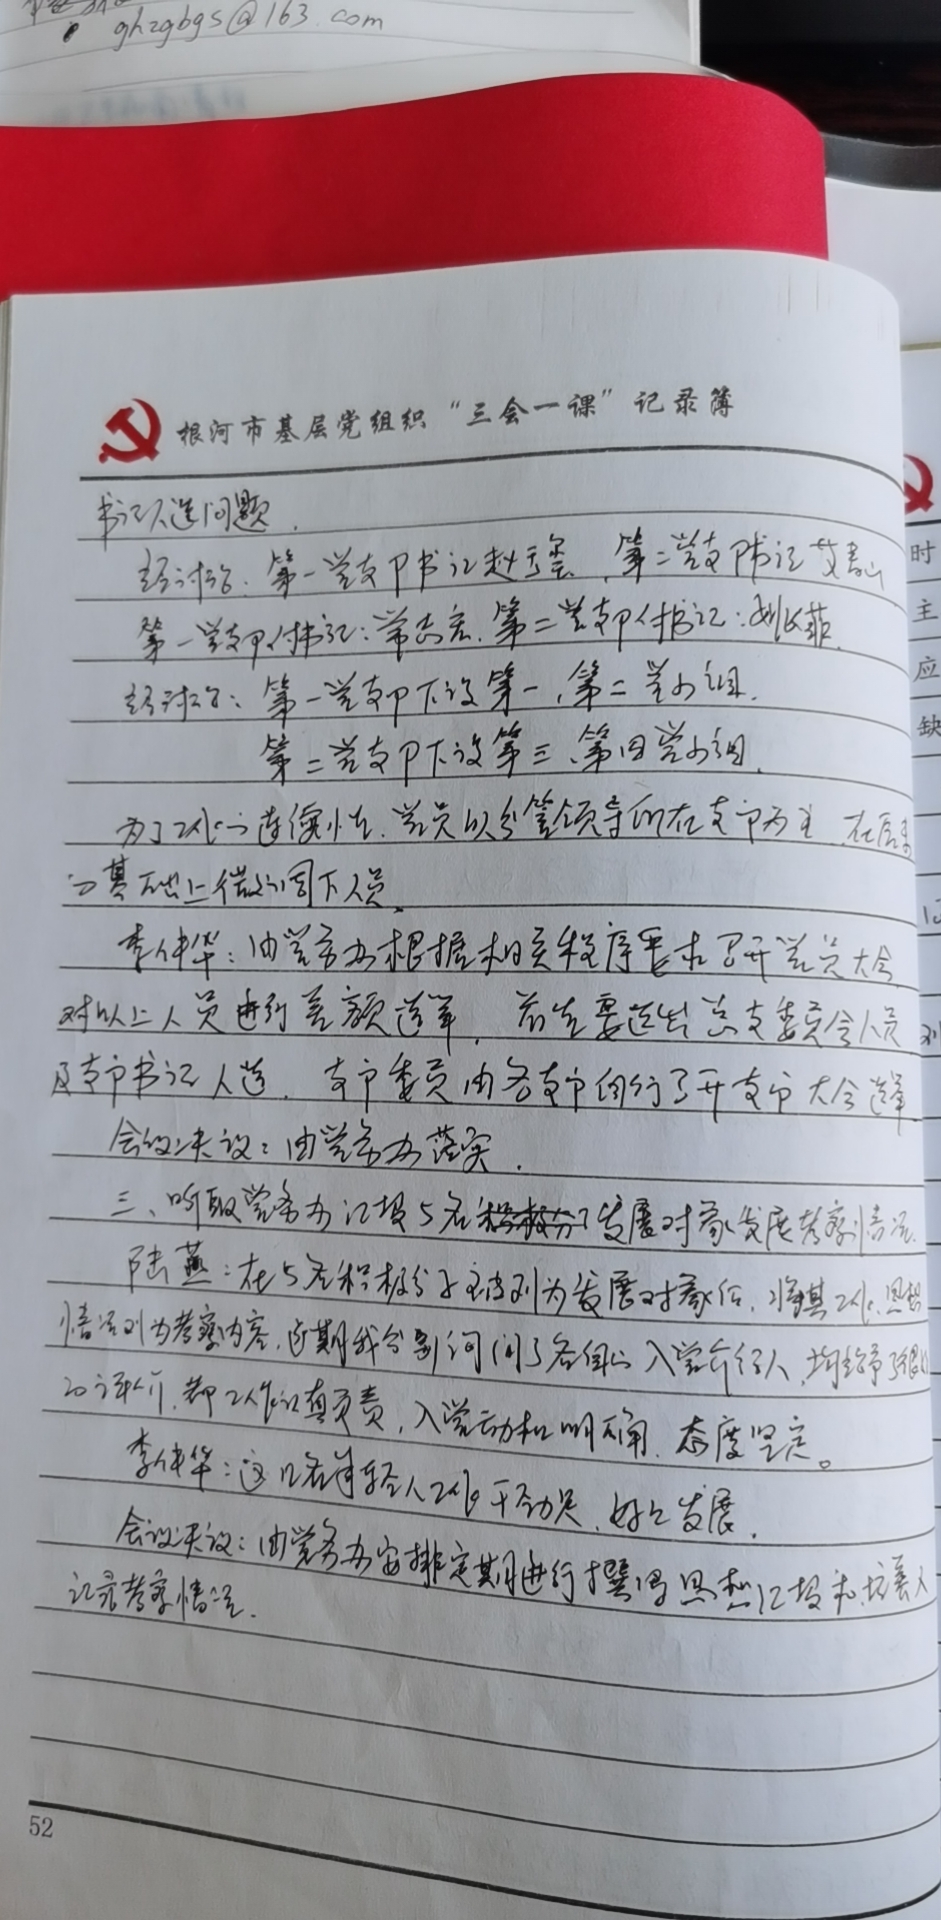 ghzgbgs@163.com
根河市基层党组织“三会一课”记录簿
书记人选问题.
经讨论:第一党支部书记赵,第二党支部书记艾春山
第一党支部付书记:常志宏.第二党支部付书记:姚菲.
经讨论:第一党支部下设第一、第二党小组.
第二党支部下设第三、第四党小组.
为了工作的连续性.党员以分管领导所在支部为主.在原来
的基础上做的调下人员.
李仲华:由党务办根据相关程序要求召开党员大会
对以上人员进行差额选举,首先要选出总支委员会人员
及支部书记人选.支部委员由各支部自行召开支部大会选举
会议决议:由党务办落实.
三、听取党务办汇报5名发展对象发展考察情况.
陆燕:在5名积极分子被列为发展对象后,将其工作、思想
情况列为考察内容,近期我分别询问了各自的入党介绍人,均给予了很好
的评价,都工作认真负责,入党动机明确.态度坚定。
李仲华:这几名年轻人工作干劲足,好好发展.
会议决议:由党务办安排定期进行撰写思想汇报和培养人
记录考察情况.
52
时
主
应
缺